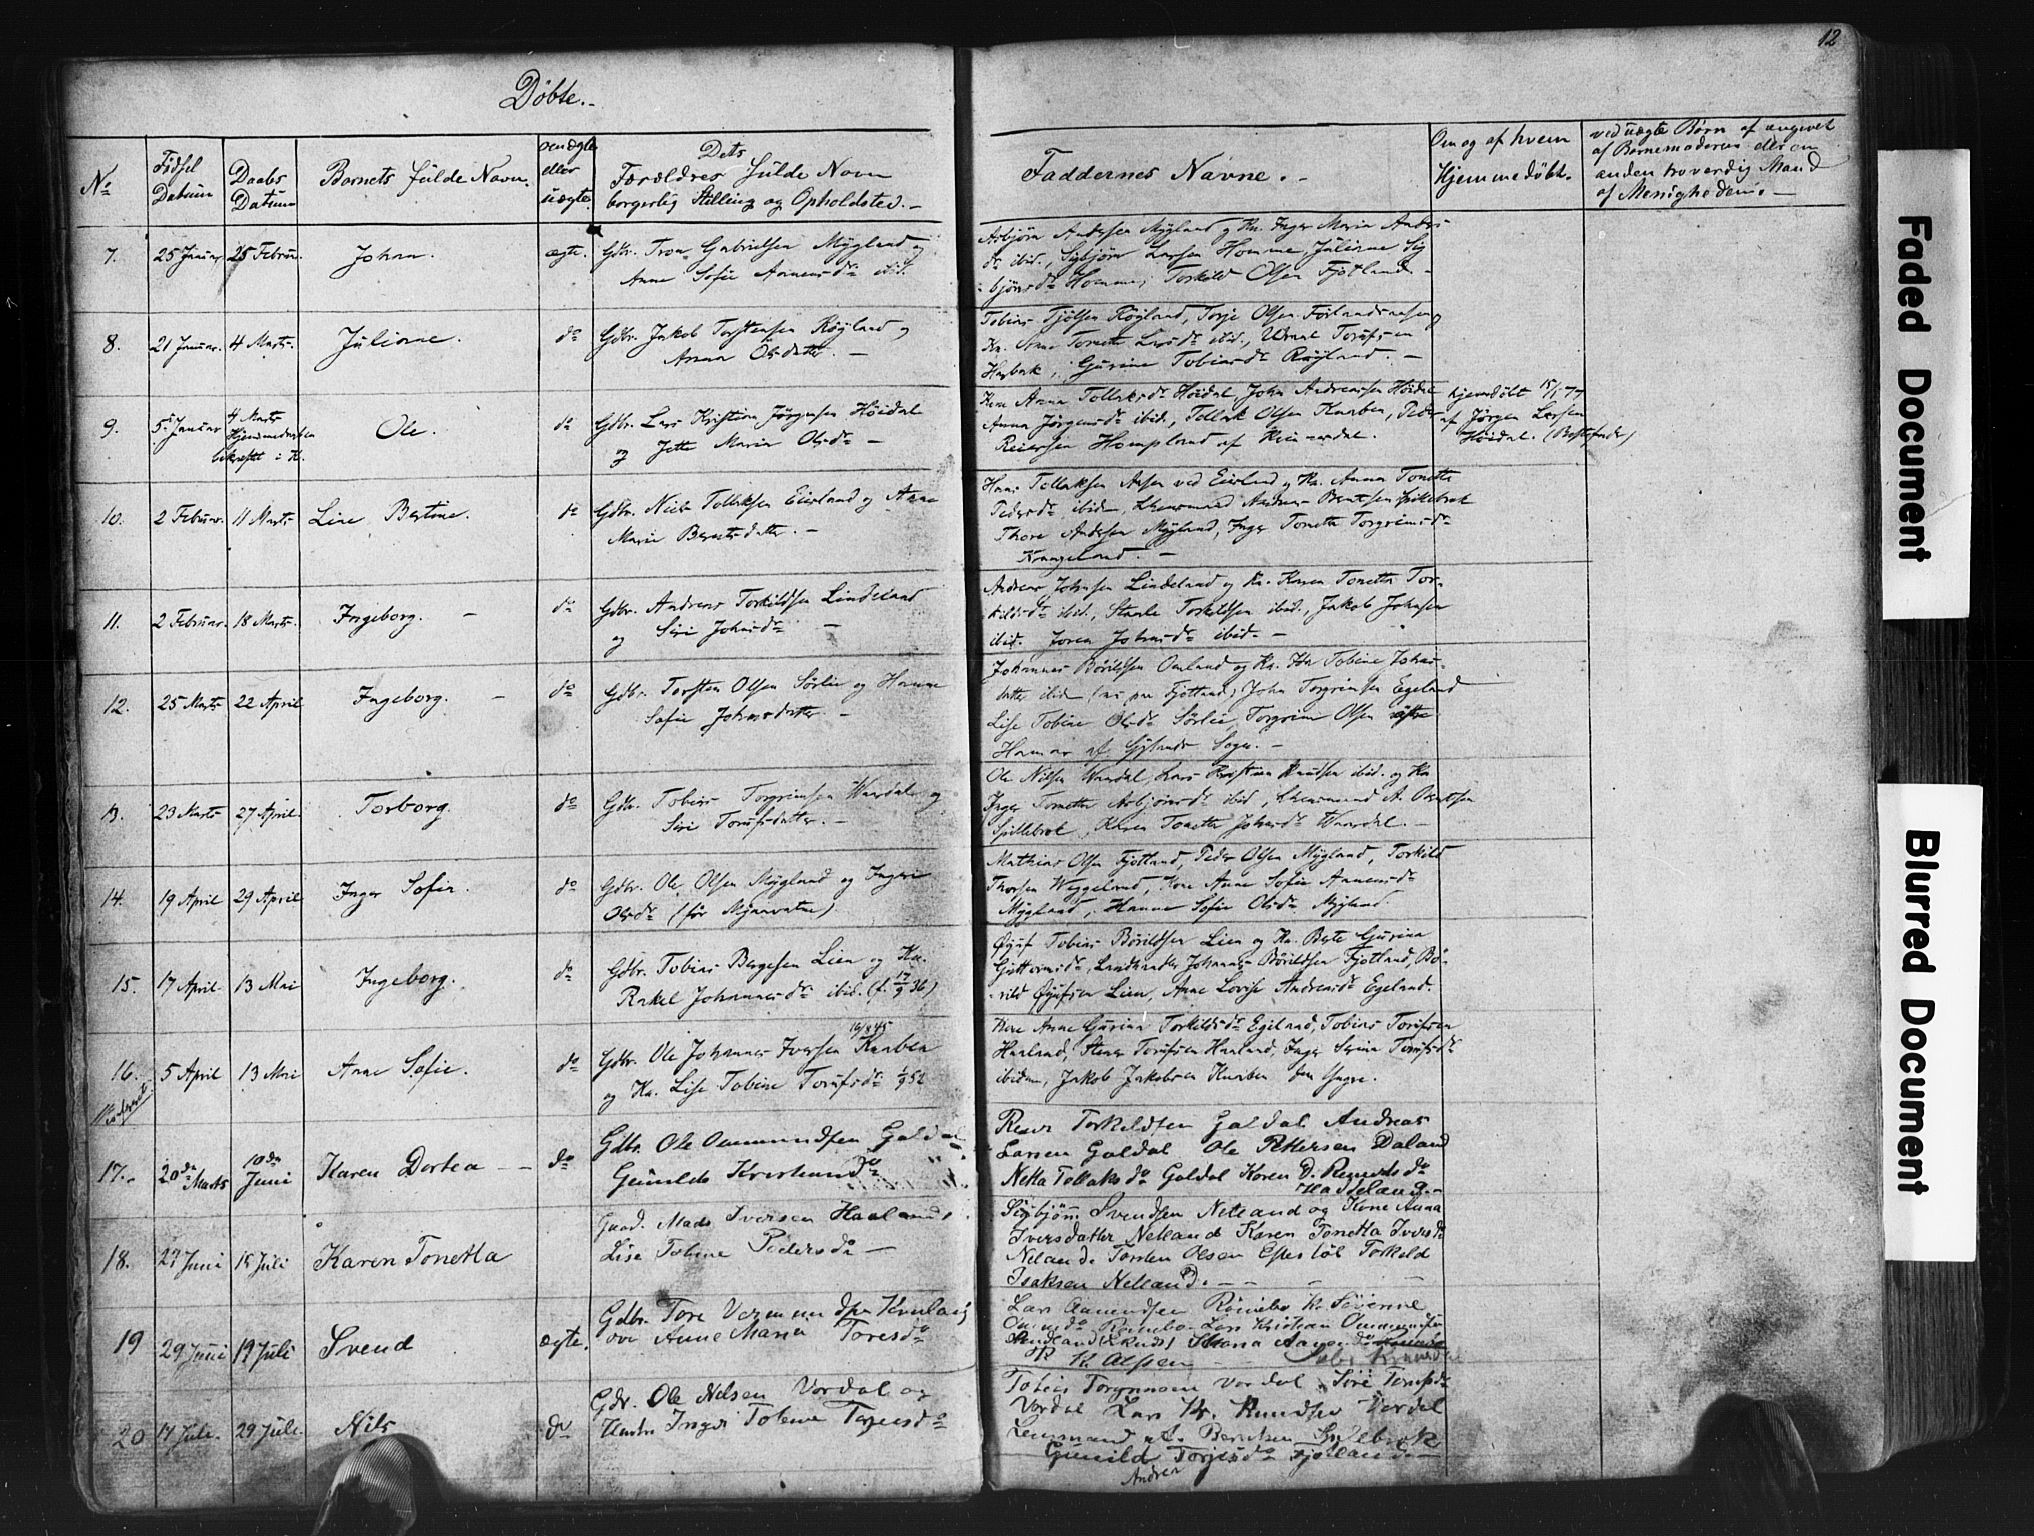 12
Døbte.-
No
Fødsel Datum
Daabs Datum
Barnets fulde Navn.
om ægte eller uægte.
Dets Forældres fulde Navn borgerlig Stilling og Opholdsted.-
Faddernes Navne.-
Om og af hvem Hjemmedøbt.
ved uægte Børn af angivet af Barnemoderen eller en anden troverdig Mand af Menigheden.-
7. 25 Januar 25 Februar. Johan. ægte. Gdbr. Tron Gabrielsen Mygland og
Anne Sofie Annensdr ibid.
Asbjørn Andersen Mygland og Kn. Inger Marie Anders-
dr ibid., Sigbjørn Larsen Homme, Juliane Sig-
bjørnsdr Homme, Torkild Olsen Fjotland.-
8. 21 Januar. 4 Marts. Juliane. do Gdbr. Jakob Torstensen Røgland og
Anna Olsdatter.-
Tobias Tjølsen Røgland, Torje Olsen
Kn. Anne Tonette Larsdr ibid.,
Gurine Tobiasdr Røgland.-
9. 5 Januar 4 Marts
Hjemmedaaben
bekræftet i K. Ole. do Gdbr. Lars Kristian Jørgensen Høidal
og Jette Marie Olsdr -
Kone Anna Tollaksdr Høidal John Andreassen Høidal
Anna Jørgensdr ibid., Tollak Olsen Knaben, Peder
Reiersen Hompland af
hjemedøbt 15/1 77
af Jørgen Larsen
Høidal. (Bostefader)
10. 2 Februar. 11 Marts Line Bertine. do Gdbr. Niels Tollaksen Eierland og Anne
Marie Berntsdatter.-
Hans Tollaksen Aasen ved Eierland og Kn. Anna Tonette
Pedersdr ibidem, Lensmand Andreas Berntsen Spillebrok
Thore Andersen Mygland, Inger Tonette Torgrimsdr
Krageland.-
11. 2 Februar. 18 Marts. Ingeborg. - do Gdbr. Andreas Torkildsen Lindeland
og Siri Johnsdr -
Andreas Johnsen Lindeland og Kn. Karen Tonette Tor-
kildsdr ibid., Staale Torkildsen ibid., Jakob Johnsen
ibid. Joren Johnsdr ibid.-
12. 25 Marts 22 April Ingeborg. - do Gdbr. Torsten Olsen Sørlie og Hanne
Sofie Johnsdatter.-
Johannes Børildsen Omland og Kn. Tobine Johns-
datter ibid. (nu paa Fjotland) John Torgrimsen Egeland
Lise Tobine Olsdr Sørlie Torgrim Olsen
Hamar af Gylands Sogn.-
13. 23 Marts 27 April. Torborg. do Gdbr. Tobias Torgrimsen Waardal og
Siri Torufsdatter.-
Ole Nilsen Waardal, Lars Kristian Knudsen ibid. og Kn
Inger Tonette Asbjørnsdr ibid, Lensmand A. Berntsen
Spillebrok, Karen Tonette Johnsdr Waardal.-
14. 19 April 29 April Inger Sofie. do Gdbr. Ole Olsen Mygland og Ingeri
Olsdr (før Myravatne)
Mathias Olsen Fjotland, Peder Olsen Mygland, Torkild
Thorsen Weggeland, Kone Anne Sofie Annensdr
Mygland, Hanne Sofie Olsdr Mygland.
15. 17 April 13 Mai Ingeborg. do Gdbr. Tobias Bergesen Lien og Kn.
Rakel Johannesdr ibid. (f. 17/9 36)
Øjuf Tobias Børildsen Lien og Kn. Berte Gurine
Guttormsdr, Landhandler Johannes Børildsen Fjotland, Bø-
rild Øjufsen Lien, Anne Lovise Andreasdr Egeland.
16. 5 April 13 Mai Anne Sofie. do Gdbr. Ole Johannes Iversen Knaben 16/8 45
og Kn. Lise Tobine Torufsdr 1/9 52
Kone Anne Gurine Torkildsdr Egeland, Tobias Torufsen
Haaland, Stener Torufsen Haaland, Inger Serine Torufsdr
ibidem, Jakob Jakobsen Knaben den Yngre.
17. 20de Marts 10de Juni Karen Dortea - do Gdbr. Ole Ommundsen Galdal
Gunilde Kristiansdr
Reier Torkeldsen Galdal Andreas
Larsen Galdal Ole Pettersen Daland
Netta Tollaksdr Galdal Karen D. Reiersdr
Haddeland.-
18. 27 Juni 15 Juli Karen Tonetta Gaard. Mads Iversen Haaland,
Lise Tobine Pedersdr -
Sigbjørn Svendsen Netland og Kone Anna
Iversdatter Netland Karen Tonetta Iversdr
Netland. Torsten Olsen Eftestøl Torkeld
Isaksen Netland.- -
19 29 Juni 19 Juli Svend ægte. Gdbr. Tore
Anne Maria Toresdr
Lars Aamundsen
R. Olsen
20 17 Juli. 29 Juli. Nils do Gdr. Ole Nilsen Vordal og
Hustru Inger Tobine Torjusdr
Tobias Torgrimsen Vordal Siri Torufsdr
Vordal Lars Kr. Knudsen Vordal
Lensmand A. Berntsen Spillebrok
Gunild Torjesdr Fjotland.-
Andrea
Faded Document
Blurred Document